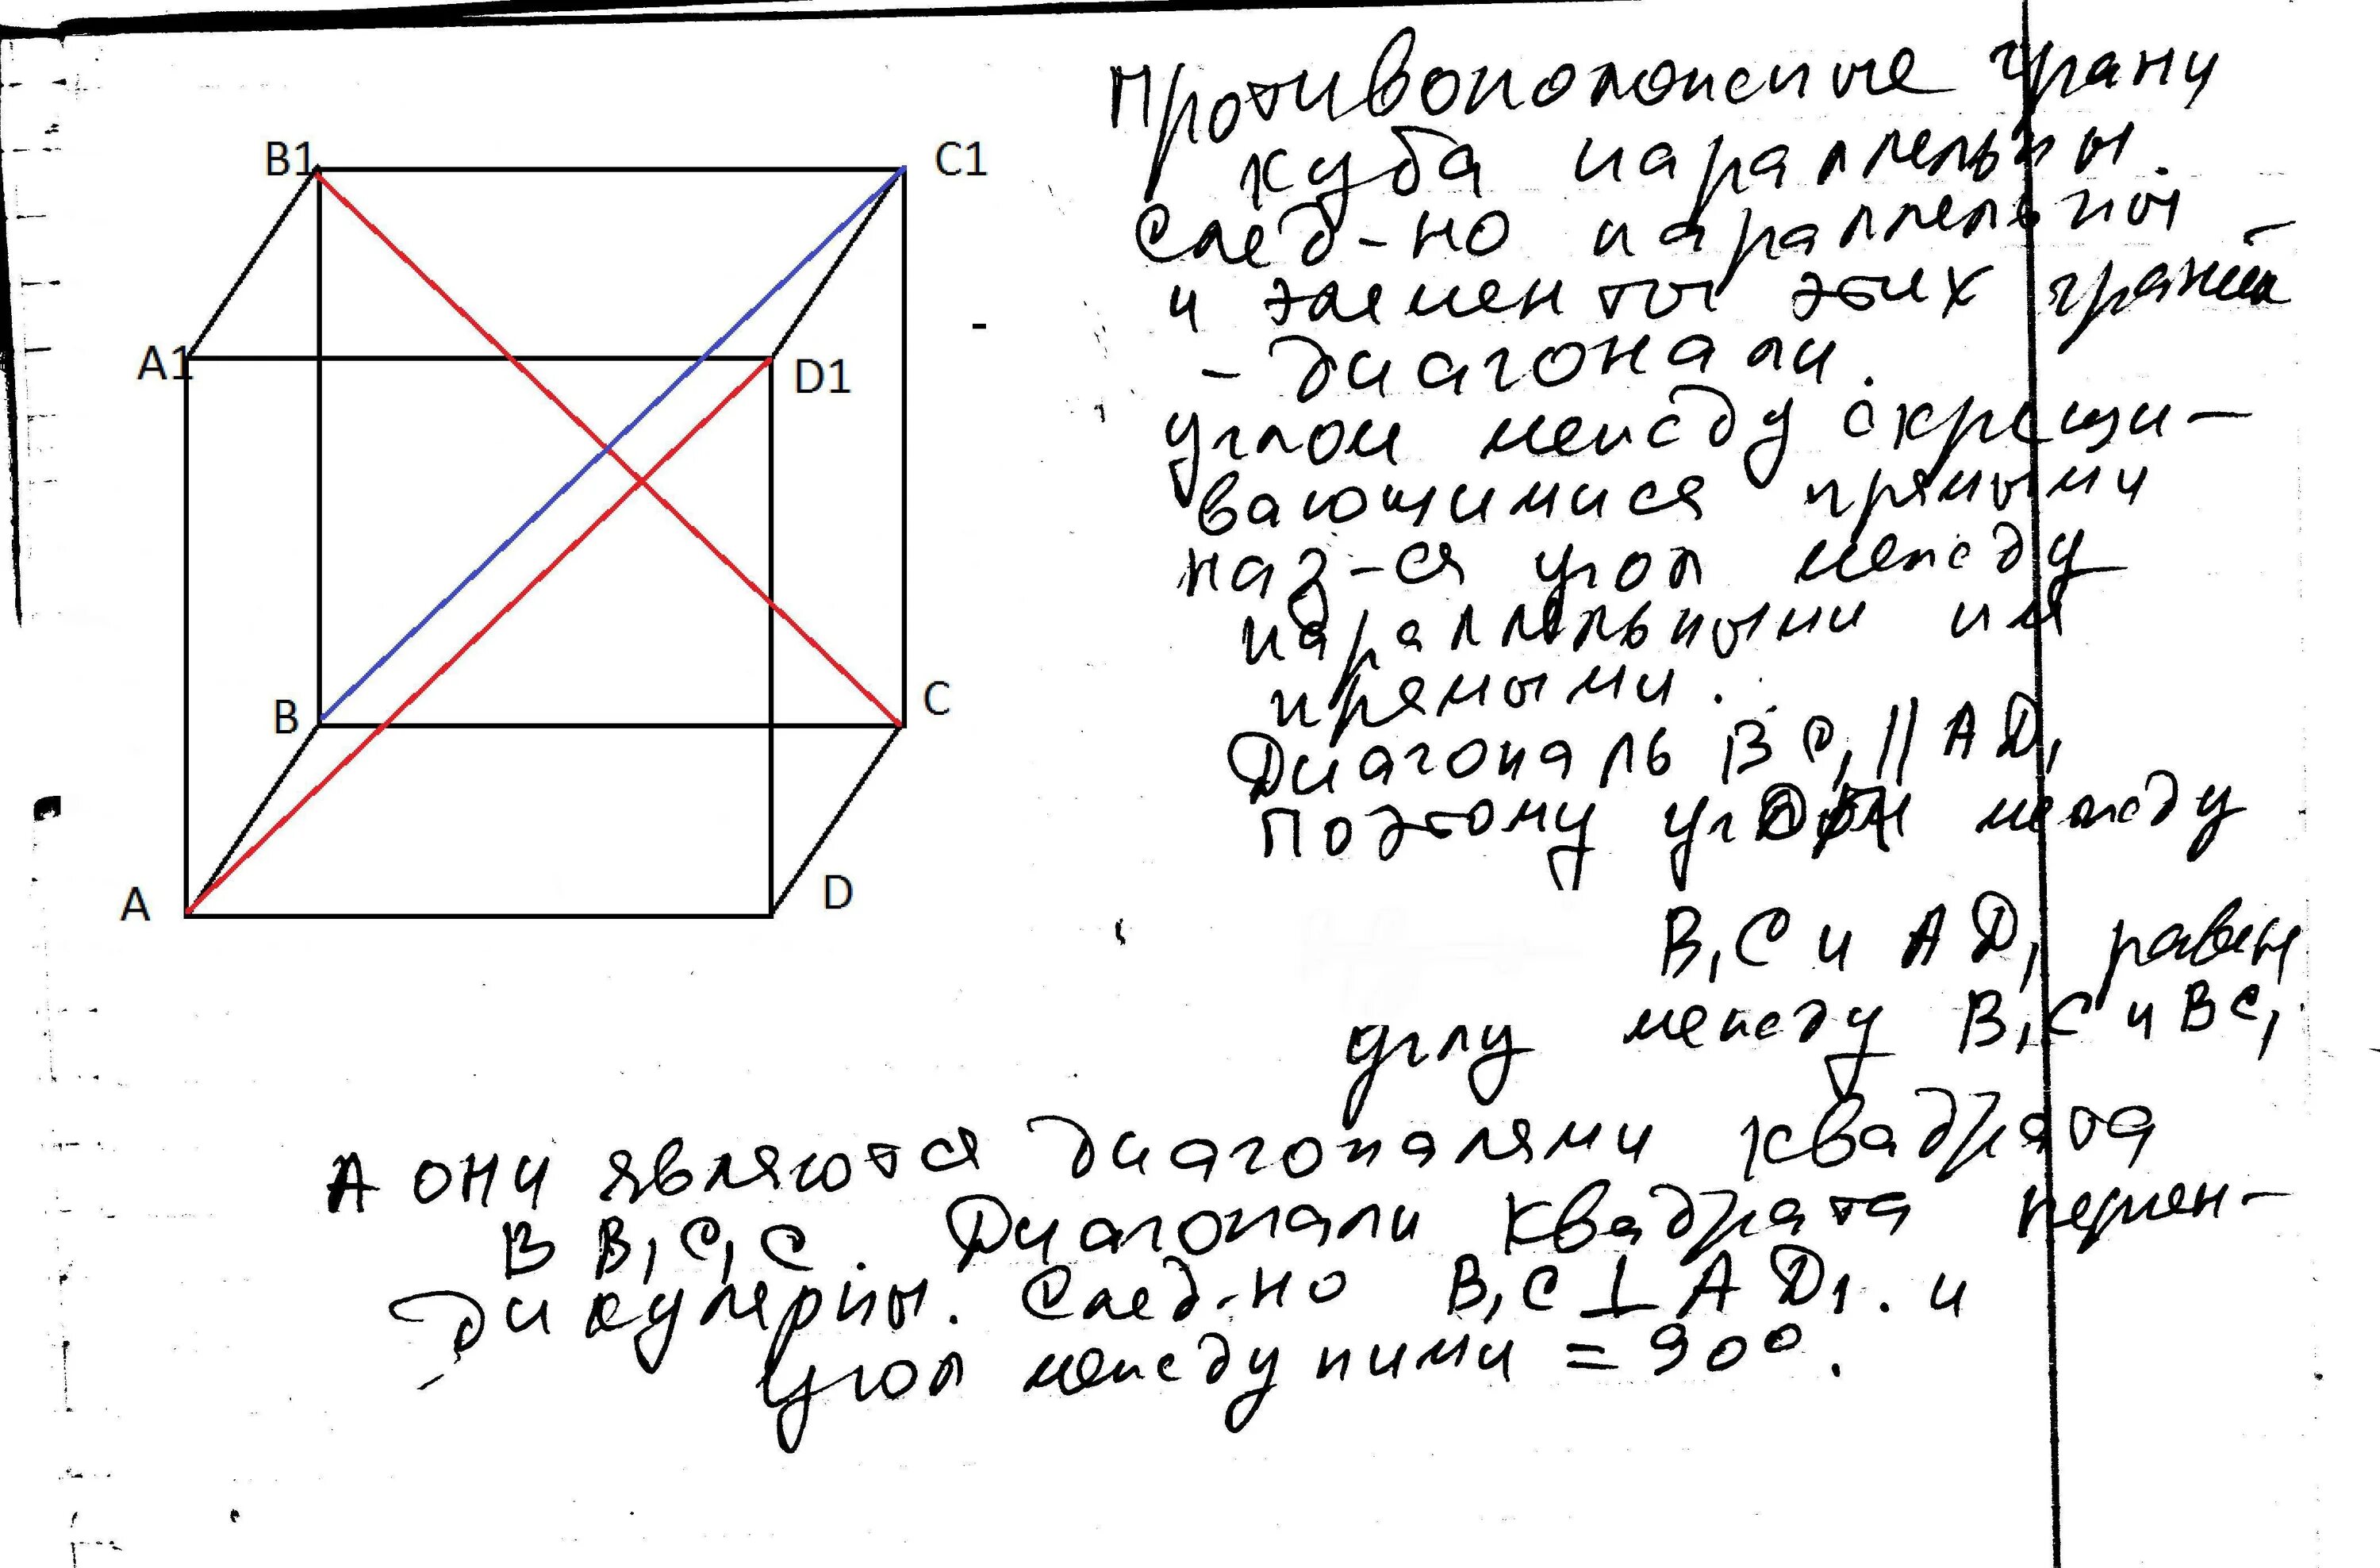 B1
C1
A1
D1
B
C
A
D
Противоположные грани
куба параллельны.
След-но параллельны
и элементы этих граней
- диагонали.
углом между скрещи-
вающимися прямыми
наз-ся угол между
параллельными им
прямыми.
Диагональ BC₁ || AD₁
Поэтому угол между
B₁C и AD₁ равен
углу между B₁C и BC₁
А они являются диагоналями квадрата
B B₁C₁C. Диагонали квадрата перпен-
дикулярны. След-но B₁C ⊥ AD₁. и
угол между ними = 90°.